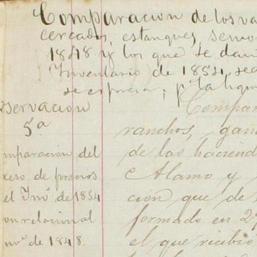 Comparacion de los va
cercados, estanques, semo
1848 y los que se dan
Inventario de 1854, seg
se expresa; pa la liqu
Observacion
5a
mparacion del
ceso de precios
el Ymo de 1854
on relacional
mo de 1848.
Compar
ranchos, gana
de las haciend
Alamo y
cion que de
formado en 27
el que recibio